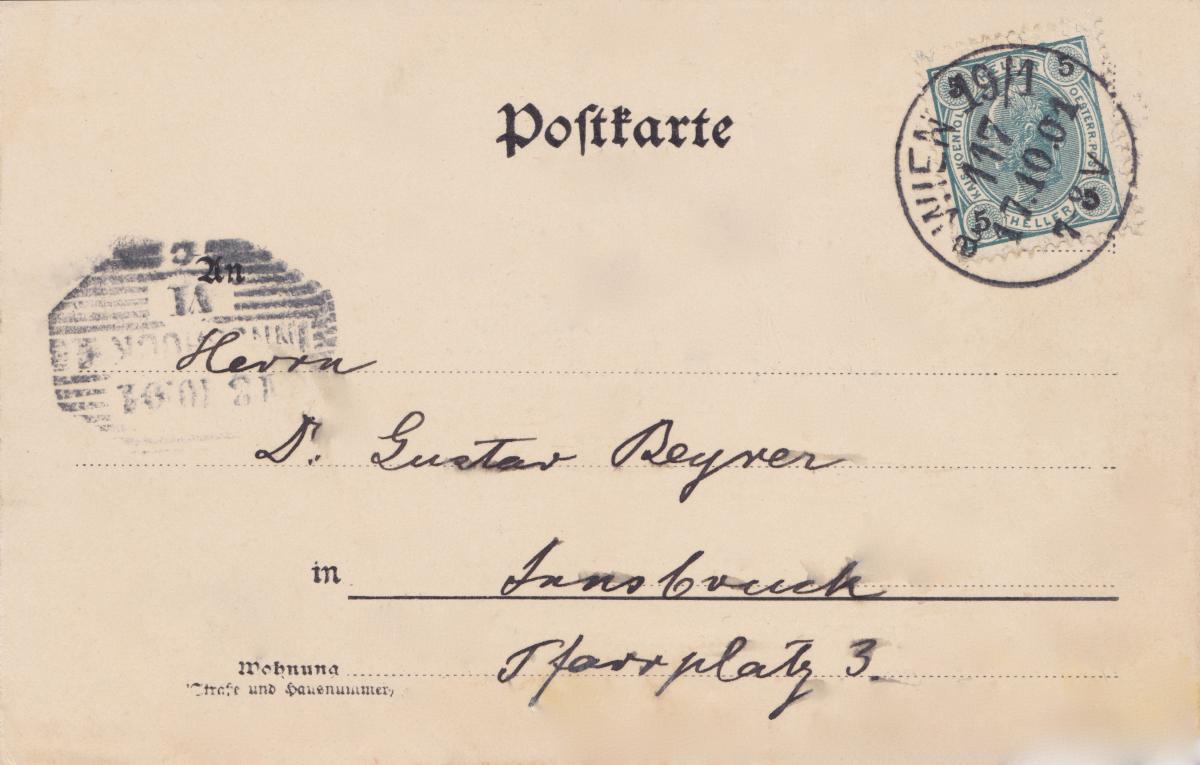 Postkarte
WIEN 19/1
117
17.10.01
KAIS. KOENIGL. OESTERR. POST
5 HELLER 5
An
VI
INNSBRUCK
18.10.01
Herrn
Dr. Gustav Beyrer
in Innsbruck
Wohnung Pfarrplatz 3.
(Straße und Hausnummer)